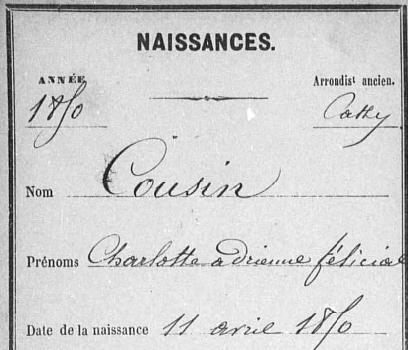 NAISSANCES.
ANNÉE Arrondist ancien.
1850 Cathy
Nom Cousin
Prénoms Charlotte adrienne félicia
Date de la naissance 11 avril 1850